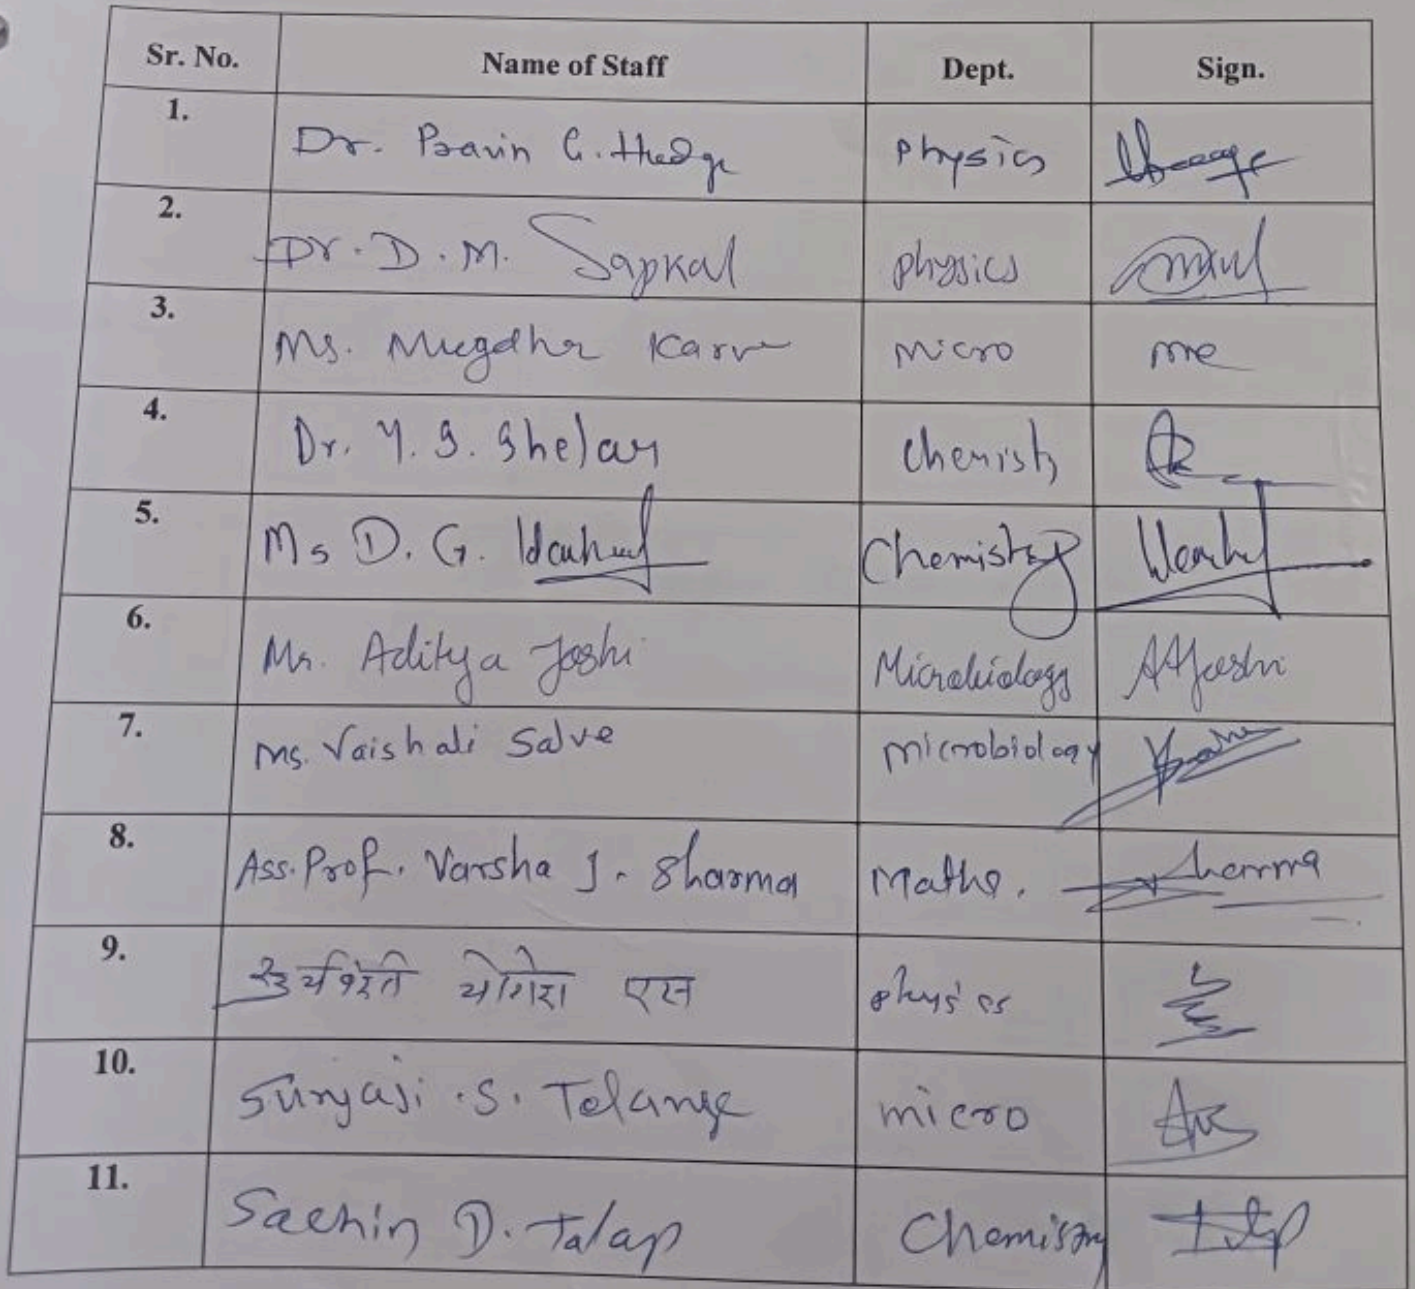 Sr. No. Name of Staff Dept. Sign.
1. Dr. Pravin G. Hedge physics
2. Dr. D. M. Sapkal physics
3. Ms. Mugdha Karve micro
4. Dr. Y. S. Shelar Chemistry
5. Ms D. G. Chemistry
6. Mr. Aditya Joshi Microbiology AAJoshi
7. Ms. Vaishali Salve microbiology
8. Ass. Prof. Varsha J. Sharma Maths. Sharma
9. योगेश एस physics
10. S. Telange micro
11. Sachin D. Talap Chemistry